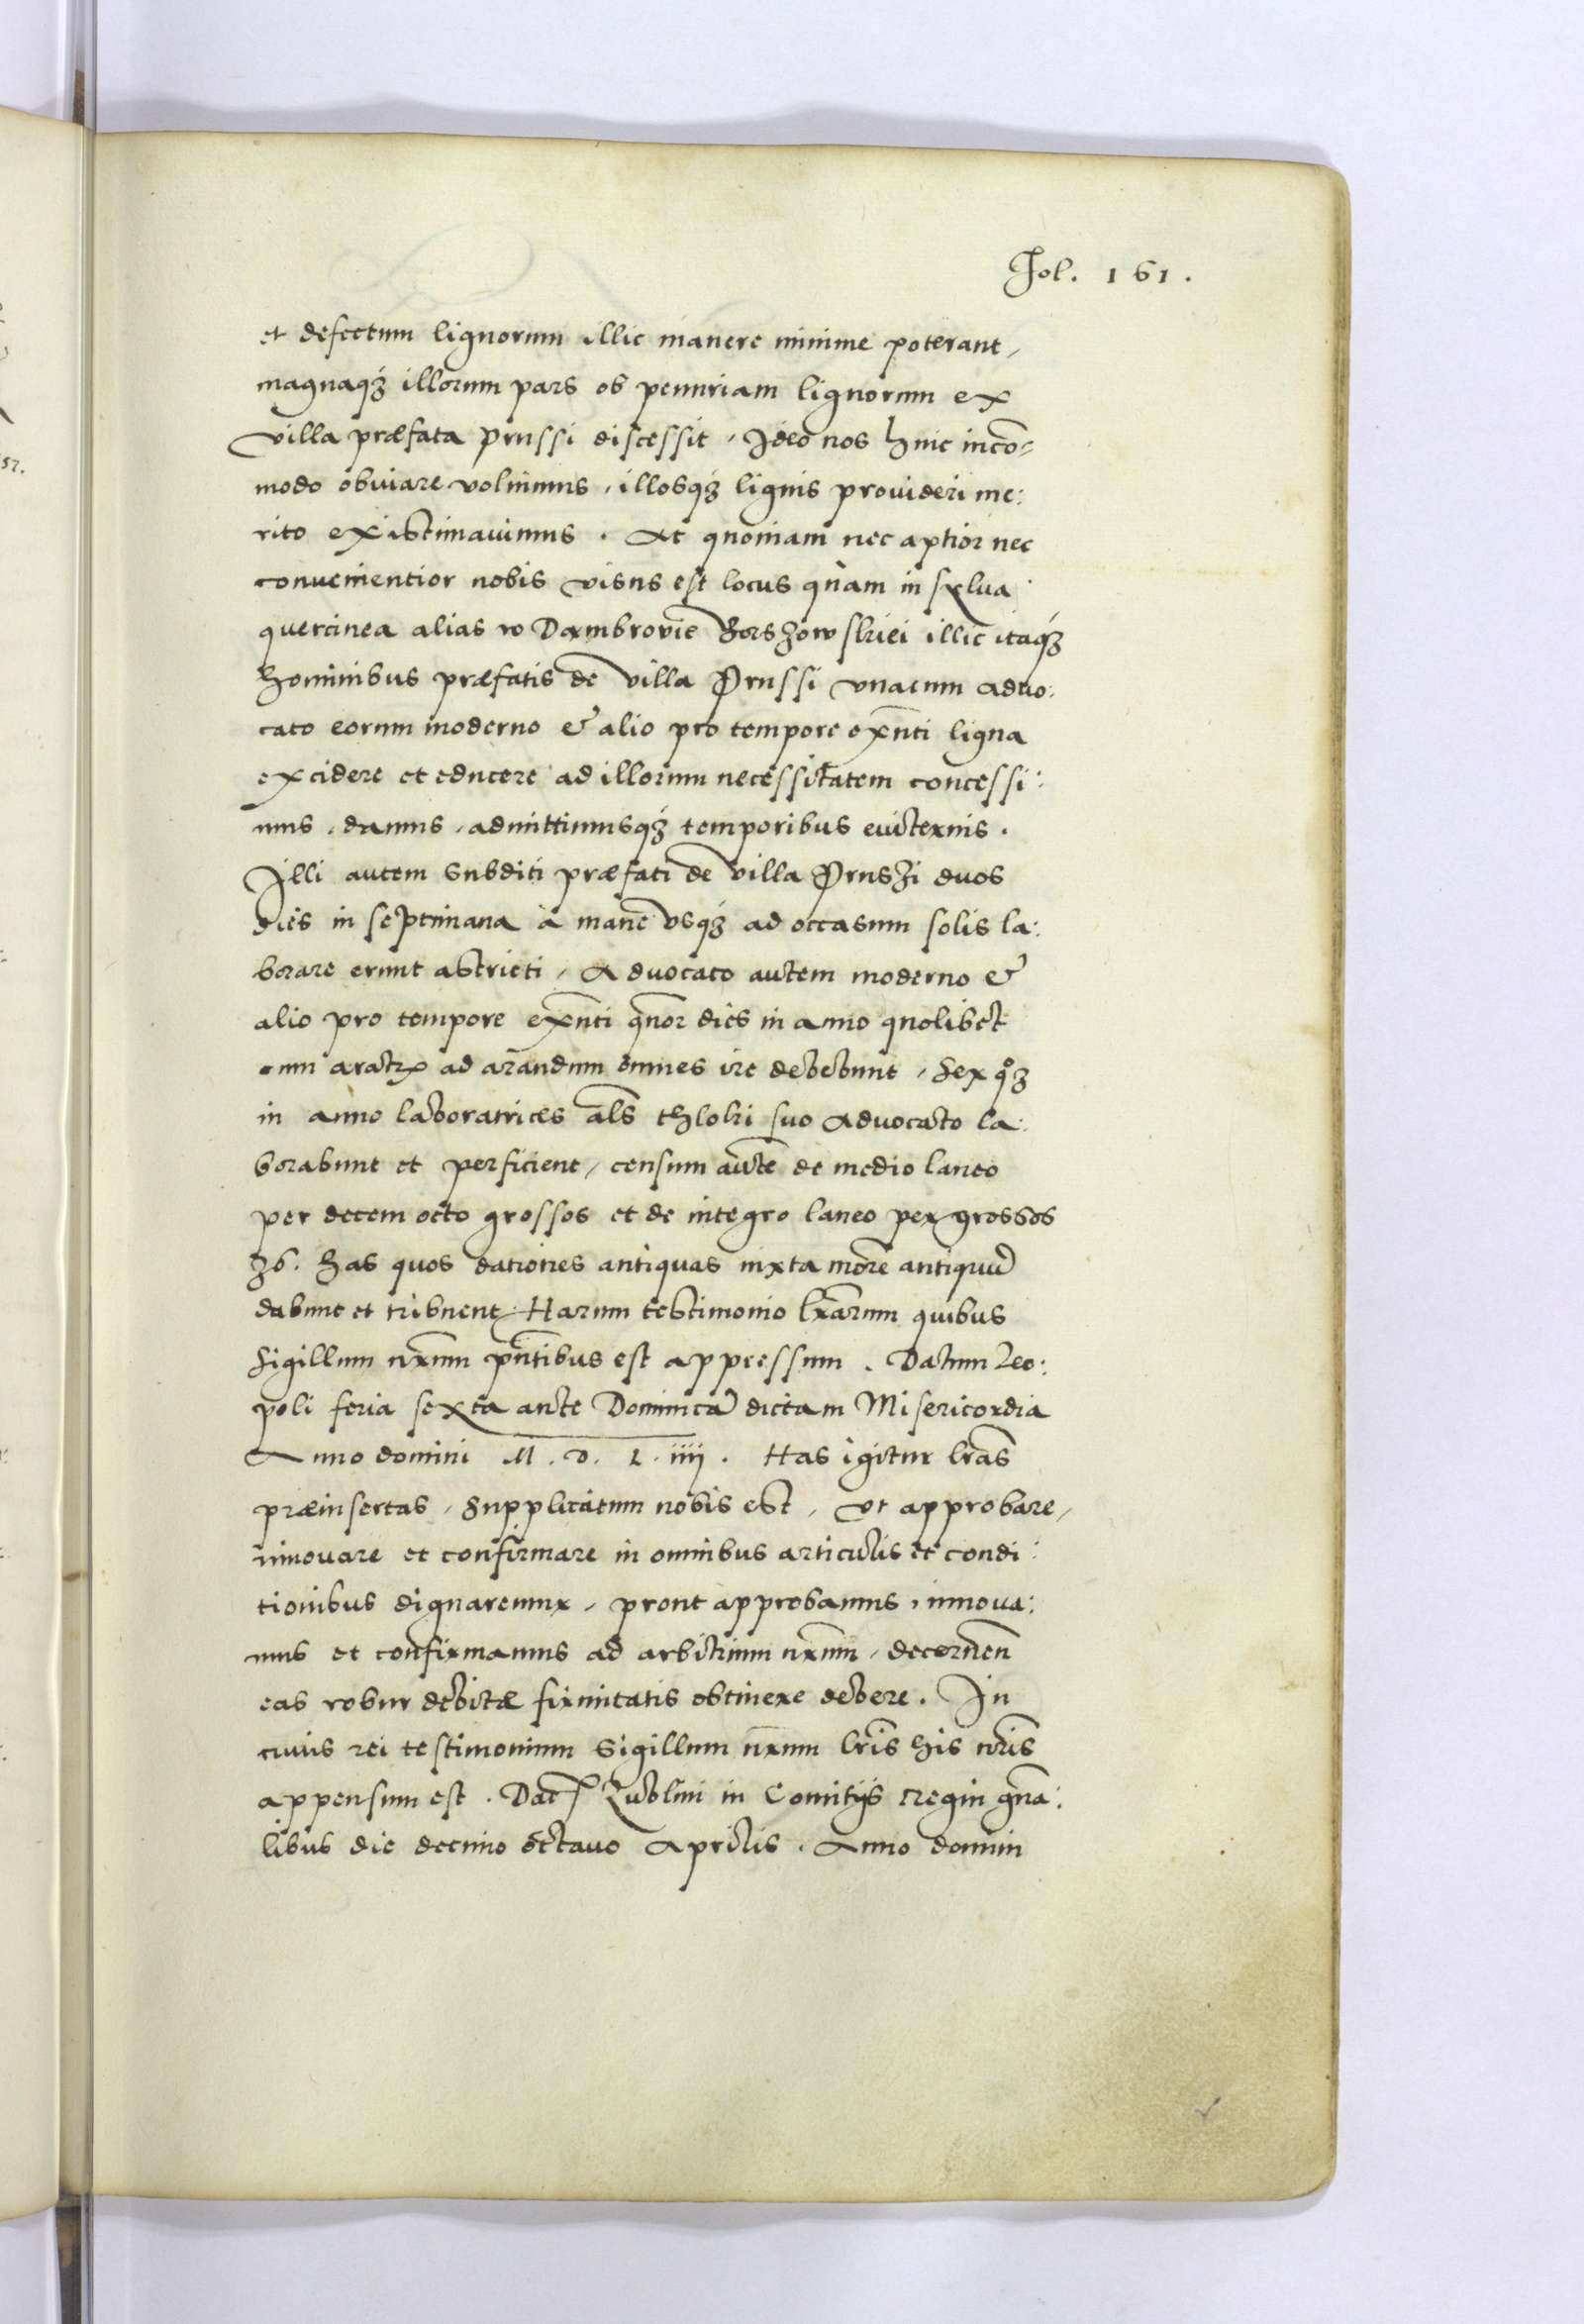 Fol. 161.
et defectum lignorum illic manere minime poterant,
magnaqꝫ illorum pars ob penuriam lignorum ex
villa præfata prussi discessit, Ideo nos huic incō-
modo obviare voluimus, illosqꝫ lignis provideri me:
rito existimavimus. At quoniam nec aptior nec
convenientior nobis visus est locus quàm in sylva
quercinea alias w Dambrovie Borszowskiei illic itaqꝫ
hominibus præfatis de villa Prussi vnacum advo:
cato eorum moderno & alio pro tempore exn̄ti ligna
excidere et educere ad illorum necessitatem concessi:
mus, damus, admittimusqꝫ temporibus eviternis.
Illi autem subditi præfati de villa Pruszi duos
dies in septimana à mane vsqꝫ ad occasum solis la:
borare erunt astricti, Advocato autem moderno &
alio pro tempore exn̄ti qnor dies in anno quolibet
cum aratro ad arandum omnes ire debebunt, sex qꝫ
in anno laboratrices als̄ thloki suo Advocato la:
borabunt et perficient, censum autē de medio laneo
per decem octo grossos et de integro laneo per grossos
36. has quos dationes antiquas iuxta morē antiquū
dabunt et tribuent, Harum testimonio lr̄arum quibus
Sigillum nr̄um pn̄tibus est appressum. Datum Leo:
poli feria sexta ante Dominicā dictam Misericordia
Anno domini M. D. L. iiij. Has igitur lr̄as
præinsertas, supplicatum nobis est, vt approbare,
innovare et confirmare in omnibus articulis et condi:
tionibus dignaremur, prout approbamus, innova:
mus et confirmamus ad arbitrium nr̄um, decernen̄
eas robur debitæ firmitatis obtinere debere. In
cuius rei testimonium Sigillum nr̄um lr̄is his nr̄is
appensum est. Dat Lublini in Comitijs regin gn̄a:
libus die decimo octavo Aprilis. Anno domin